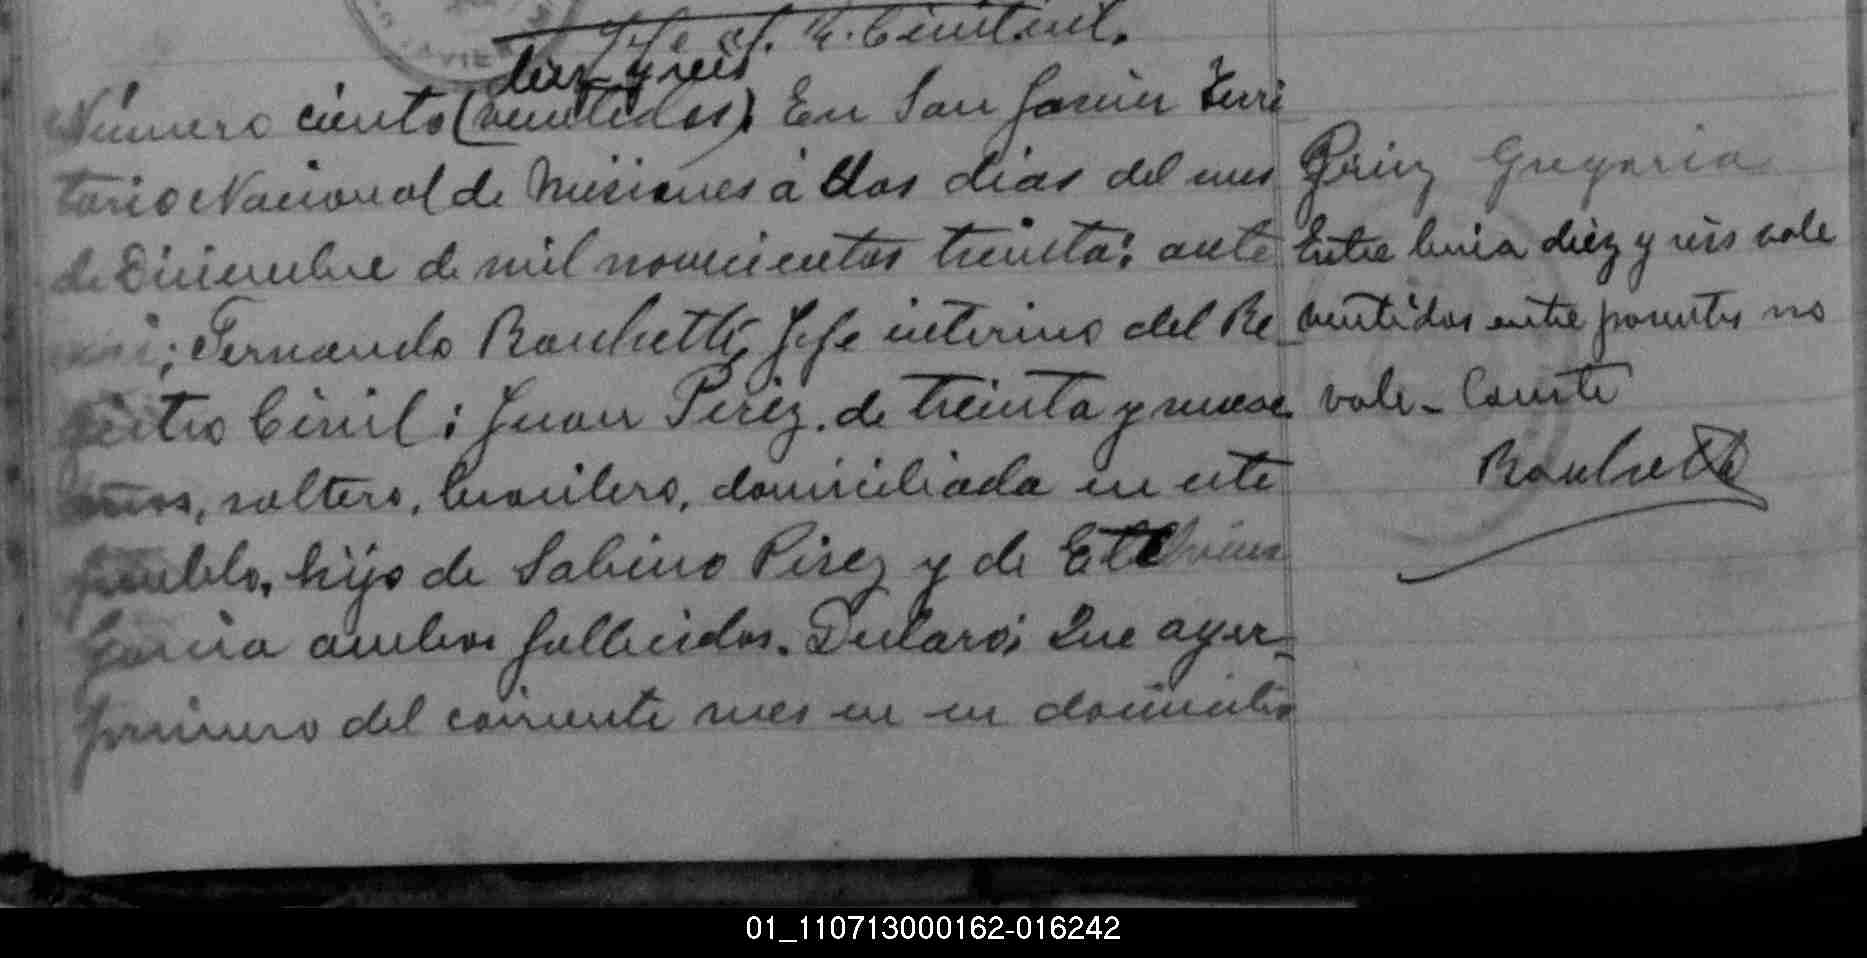 Jefe del R. Civil int.
diez y seis
Número ciento (veintidos). En San Javier Terri
torio Nacional de Misiones á dos dias del mes
de Diciembre de mil novecientos treinta: ante
mi; Fernando Jefe interino del Re
gistro Civil: Juan Pérez, de treinta y nueve
años, soltero, brasilero, domiciliado en este
pueblo, hijo de Sabino Pérez y de Etelvina
Garcia ambos fallecidos. Declaró: Que ayer
primero del corriente mes en su domicilio
Pérez Gregoria
Entre linia diez y seis vale
veintidos entre parentes no
vale - Conste
01_110713000162-016242